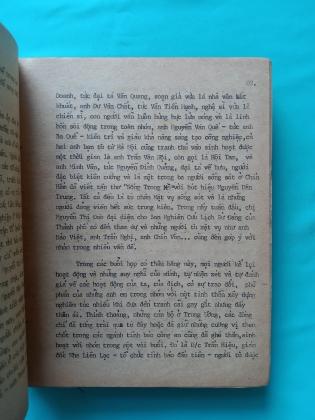 Doanh, tức đại tá Văn Quang, soạn giả vừa là nhà văn bất
khuất, anh Dư Văn Chất, tức Văn Tiến Mạnh, nghệ sĩ vừa là
chiến sĩ, con người vẫn luôn hừng hực lửa sống và là linh
hồn sôi động trong toàn nhóm, anh Nguyễn Văn Quế - tức anh
Ba Quế - kiên trì và giàu khả năng sáng tạo công nghiệp, cả
hai anh bạn từ tờ Hà Nội cũng tranh thủ vào sinh hoạt được
một thời gian là anh Trần Văn Hội, còn gọi là Hội Tam, và
anh Minh Vân, tức Nguyễn Đình Quảng, đại tá về hưu, người
đặc biệt kiên cường và là một trong ba người sống sót ở Chín
Hầm đã viết nên thư "Sống Trong Mồ" với bút hiệu Nguyễn Dân
Trung. Tất cả đều là tù nhân Mật vụ sống sót và là những
người đảng viên hết sức trung kiên. Trong mấy tuần đầu, chị
Nguyễn Thị Các đại diện cho Ban Nghiên Cứu Lịch Sử Đảng của
Thành phố có đến tham dự và những người tù mật vụ như anh
Bảo Việt, anh Trần Nghị, anh Chín Văn... cũng đến góp ý với
nhóm trong nhiều vấn đề.
Trong các buổi họp cố thừa hằng này, mọi người kể lại
hoạt động và những suy nghĩ của mình, tự nhận xét và tự đánh
giá về các hoạt động của ta, của địch, có sự trao đổi, phê
phán của những anh em trong nhóm với một tinh thần xây dựng
nghiêm túc nhiều khi đưa đến tranh cãi gay gắt nhưng đầy
thân ái. Thỉnh thoảng, những cán bộ ở Trung Ương, các đồng
chí đã từng trải qua tù đày hoặc đã giữ những cương vị then
chốt trong các ngành tình báo công an cũng đã ghé thăm, sinh
hoạt với nhóm trong một vài buổi. Đó là Bác Trần Hiệu, giám
đốc Nha Liên Lạc - tổ chức tình báo đầu tiên - người tù được